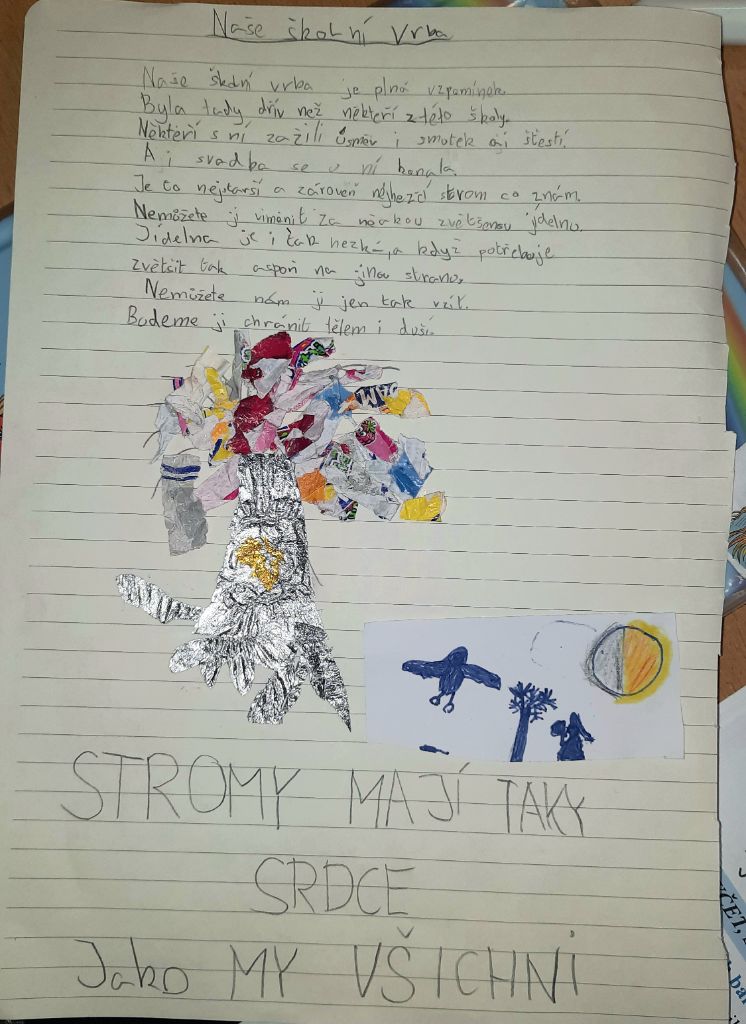 Naše školní vrba
Naše školní vrba je plná vzpomínek.
Byla tady dřív než někteří z této školy.
Někteří s ní zažili úsměv i smutek či štěstí.
A i svadba se u ní konala.
Je to nejstarší a zároveň nejhezčí strom co znám.
Nemůžete ji viměnit za něakou zvětšenou jídelnu.
Jídelna je i tak hezká, a když potřebuje
zvětšit tak aspoň na jinou stranu.
Nemůžete nám ji jen tak vzít.
Budeme ji chránit tělem i duší.
STROMY MAJÍ TAKY
SRDCE
Jako MY VŠICHNI